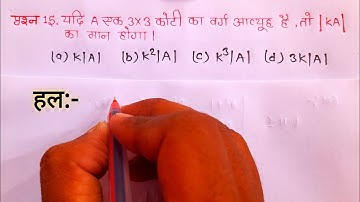 प्रश्न 15. यदि A एक 3×3 कोटी का वर्ग आव्यूह है, तो |KA|
का मान होगा।
(a) K|A| (b) K²|A| (c) K³|A| (d) 3K|A|
हल:-